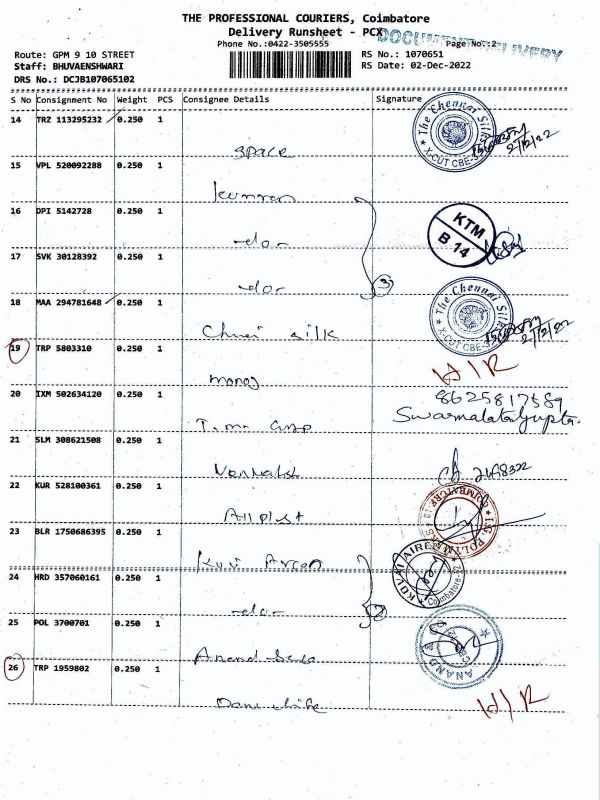 THE PROFESSIONAL COURIERS, Coimbatore
Delivery Runsheet - PCX
DOCUMENT DELIVERY
Phone No.:0422-3505555
Page No.:2
Route: GPM 9 10 STREET
RS No.: 1070651
Staff: BHUVAENSHWARI
RS Date: 02-Dec-2022
DRS No.: DCJB107065102
S No Consignment No Weight PCS Consignee Details Signature
14 TRZ 113295232 0.250 1
The Chennai Silks X-CUT CBE-
2/12/22
space
15 VPL 520092288 0.250 1
16 DPI 5142728 0.250 1
-do-
KTM
B 14
17 SVK 30128392 0.250 1
-do-
3
18 MAA 294781648 0.250 1
The Chennai Silks X-CUT CBE-
2/12/22
silk
19 TRP 5803310 0.250 1
manoj
H/R
20 IXM 502634120 0.250 1
8625817589
Swarnalata Gupta.
21 SLM 308621508 0.250 1
22 KUR 528100361 0.250 1
23 BLR 1750686395 0.250 1
24 HRD 357060161 0.250 1
-do-
2
25 POL 3700701 0.250 1
ANAND
Anand
26 TRP 1959802 0.250 1
H/R